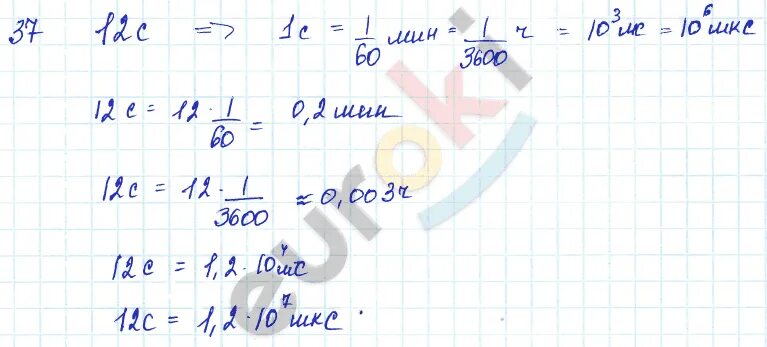 37 12с => 1с = 1/60 мин = 1/3600 ч = 10³ мс = 10⁶ мкс
12с = 12 · 1/60 = 0,2 мин
12с = 12 · 1/3600 ≈ 0,003ч
12с = 1,2 · 10⁴ мс
12с = 1,2 · 10⁷ мкс.
euroki